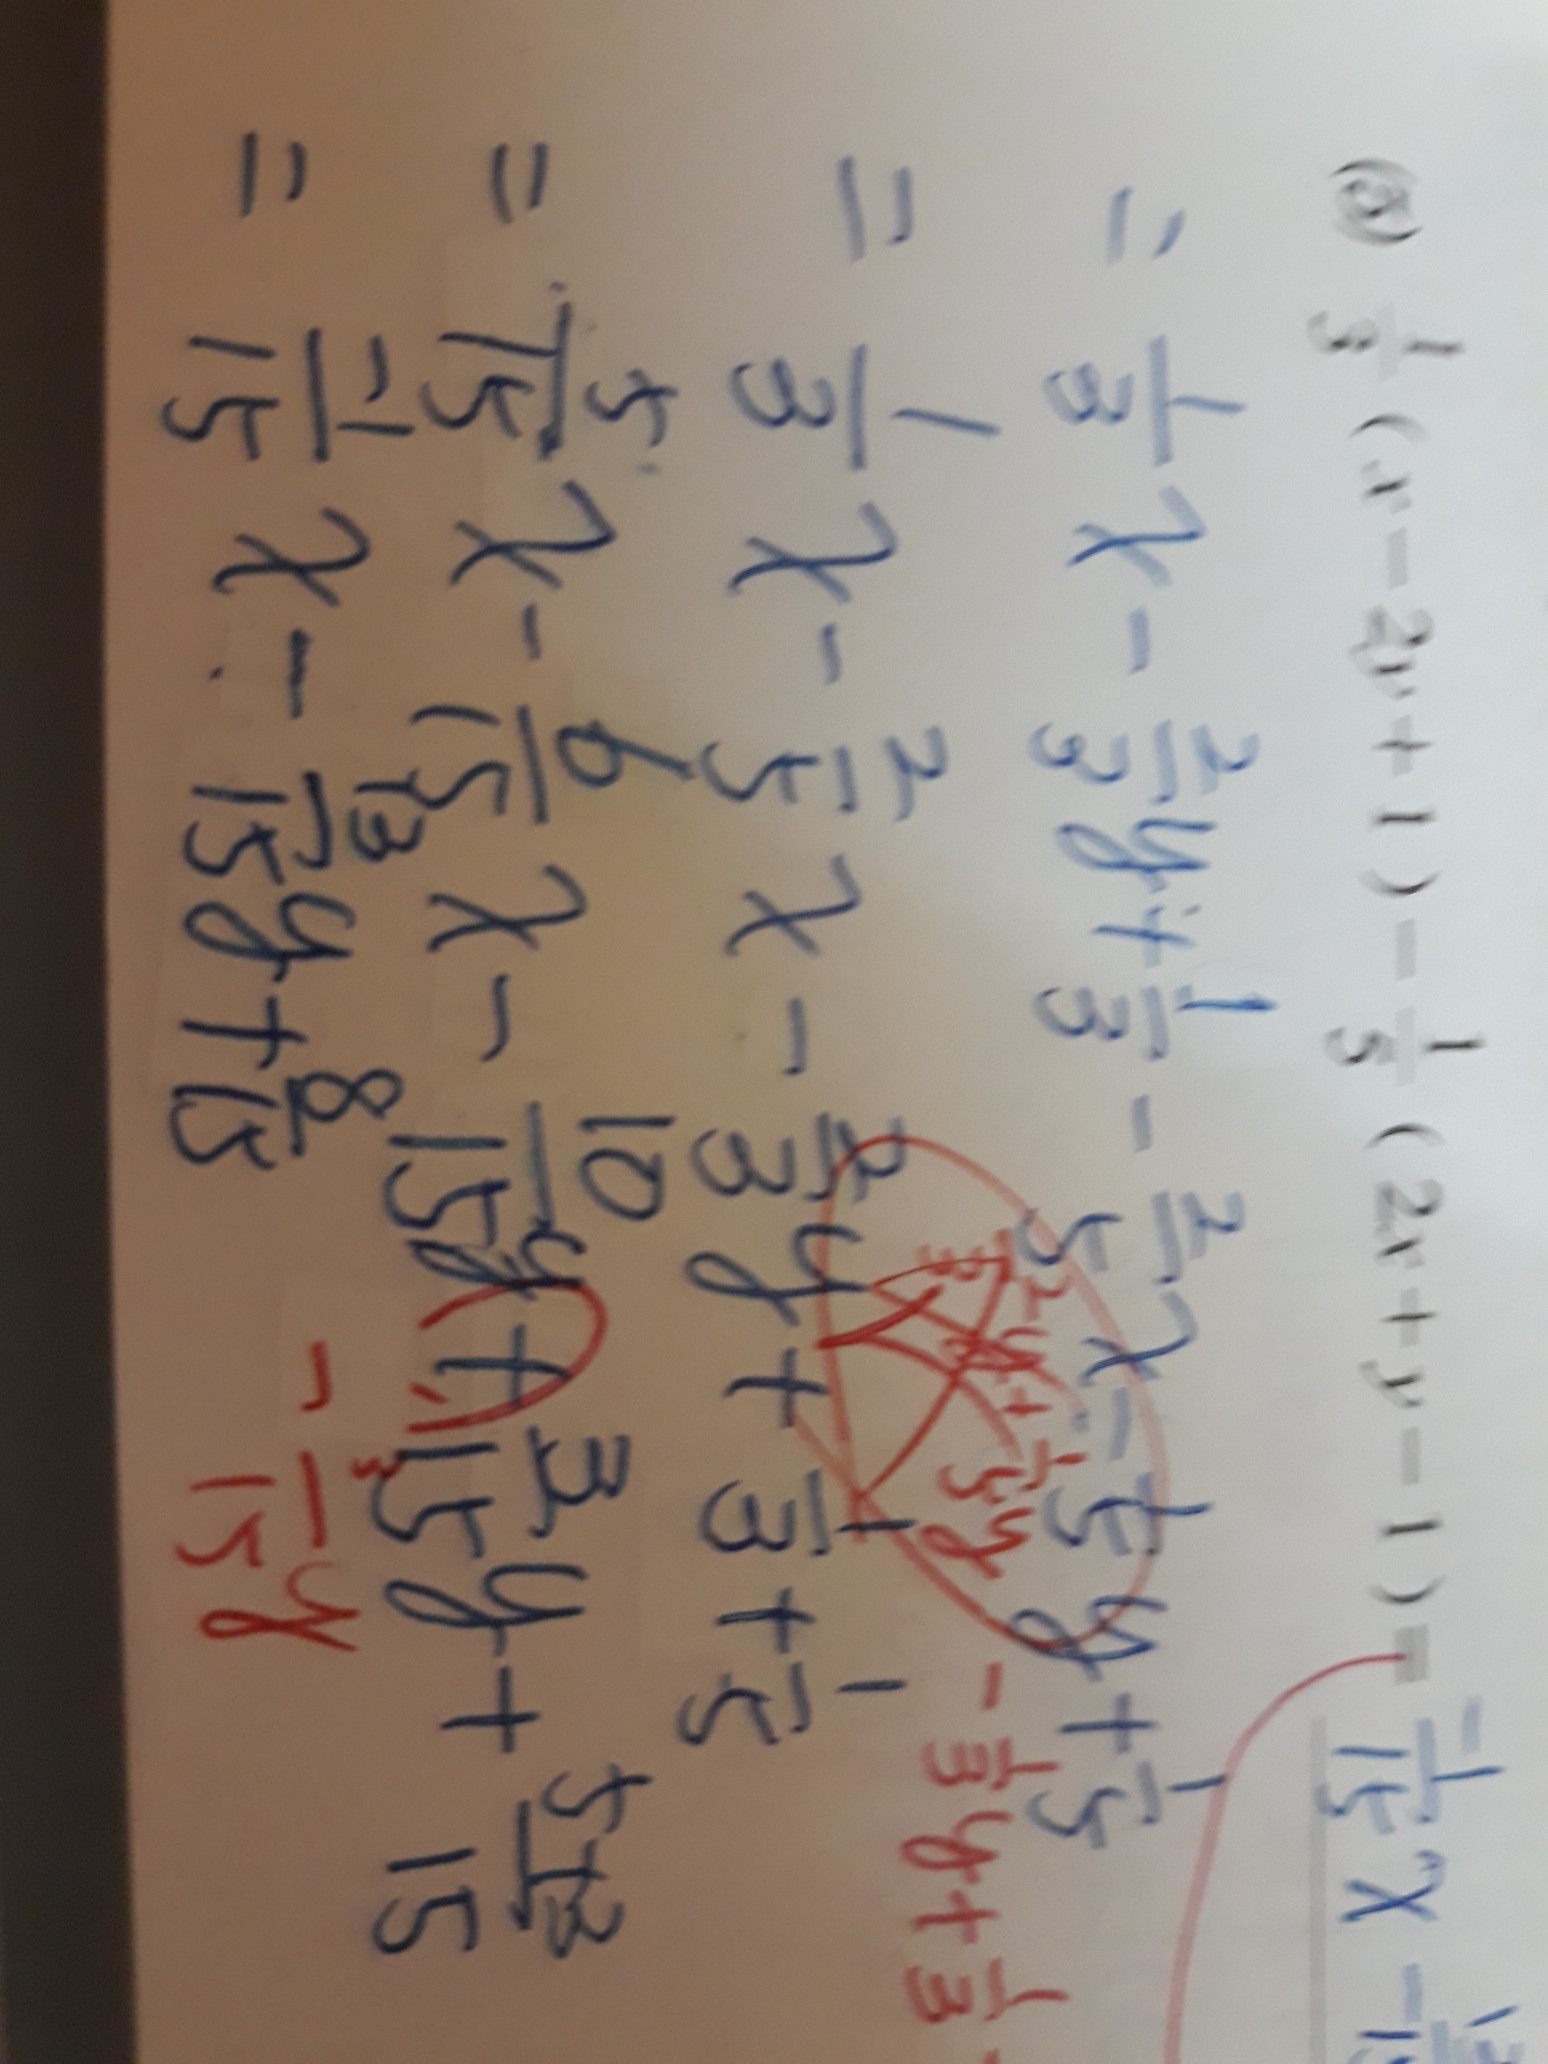 (8) 1/3 (x - 2y + 1) - 1/5 (2x + y - 1) = -1/15 x -
= 1/3 x - 2/3 y + 1/3 - 2/5 x - 1/5 y + 1/5
- 1/3 y + 1/3 -
= 1/3 x - 2/5 x - 2/3 y + 1/3 + 1/5
= 5/15 x - 6/15 x - 10/15 y + 3/15 y + 5+3/15
= -1/15 x - 13/15 y + 8/15
- 3/15 y